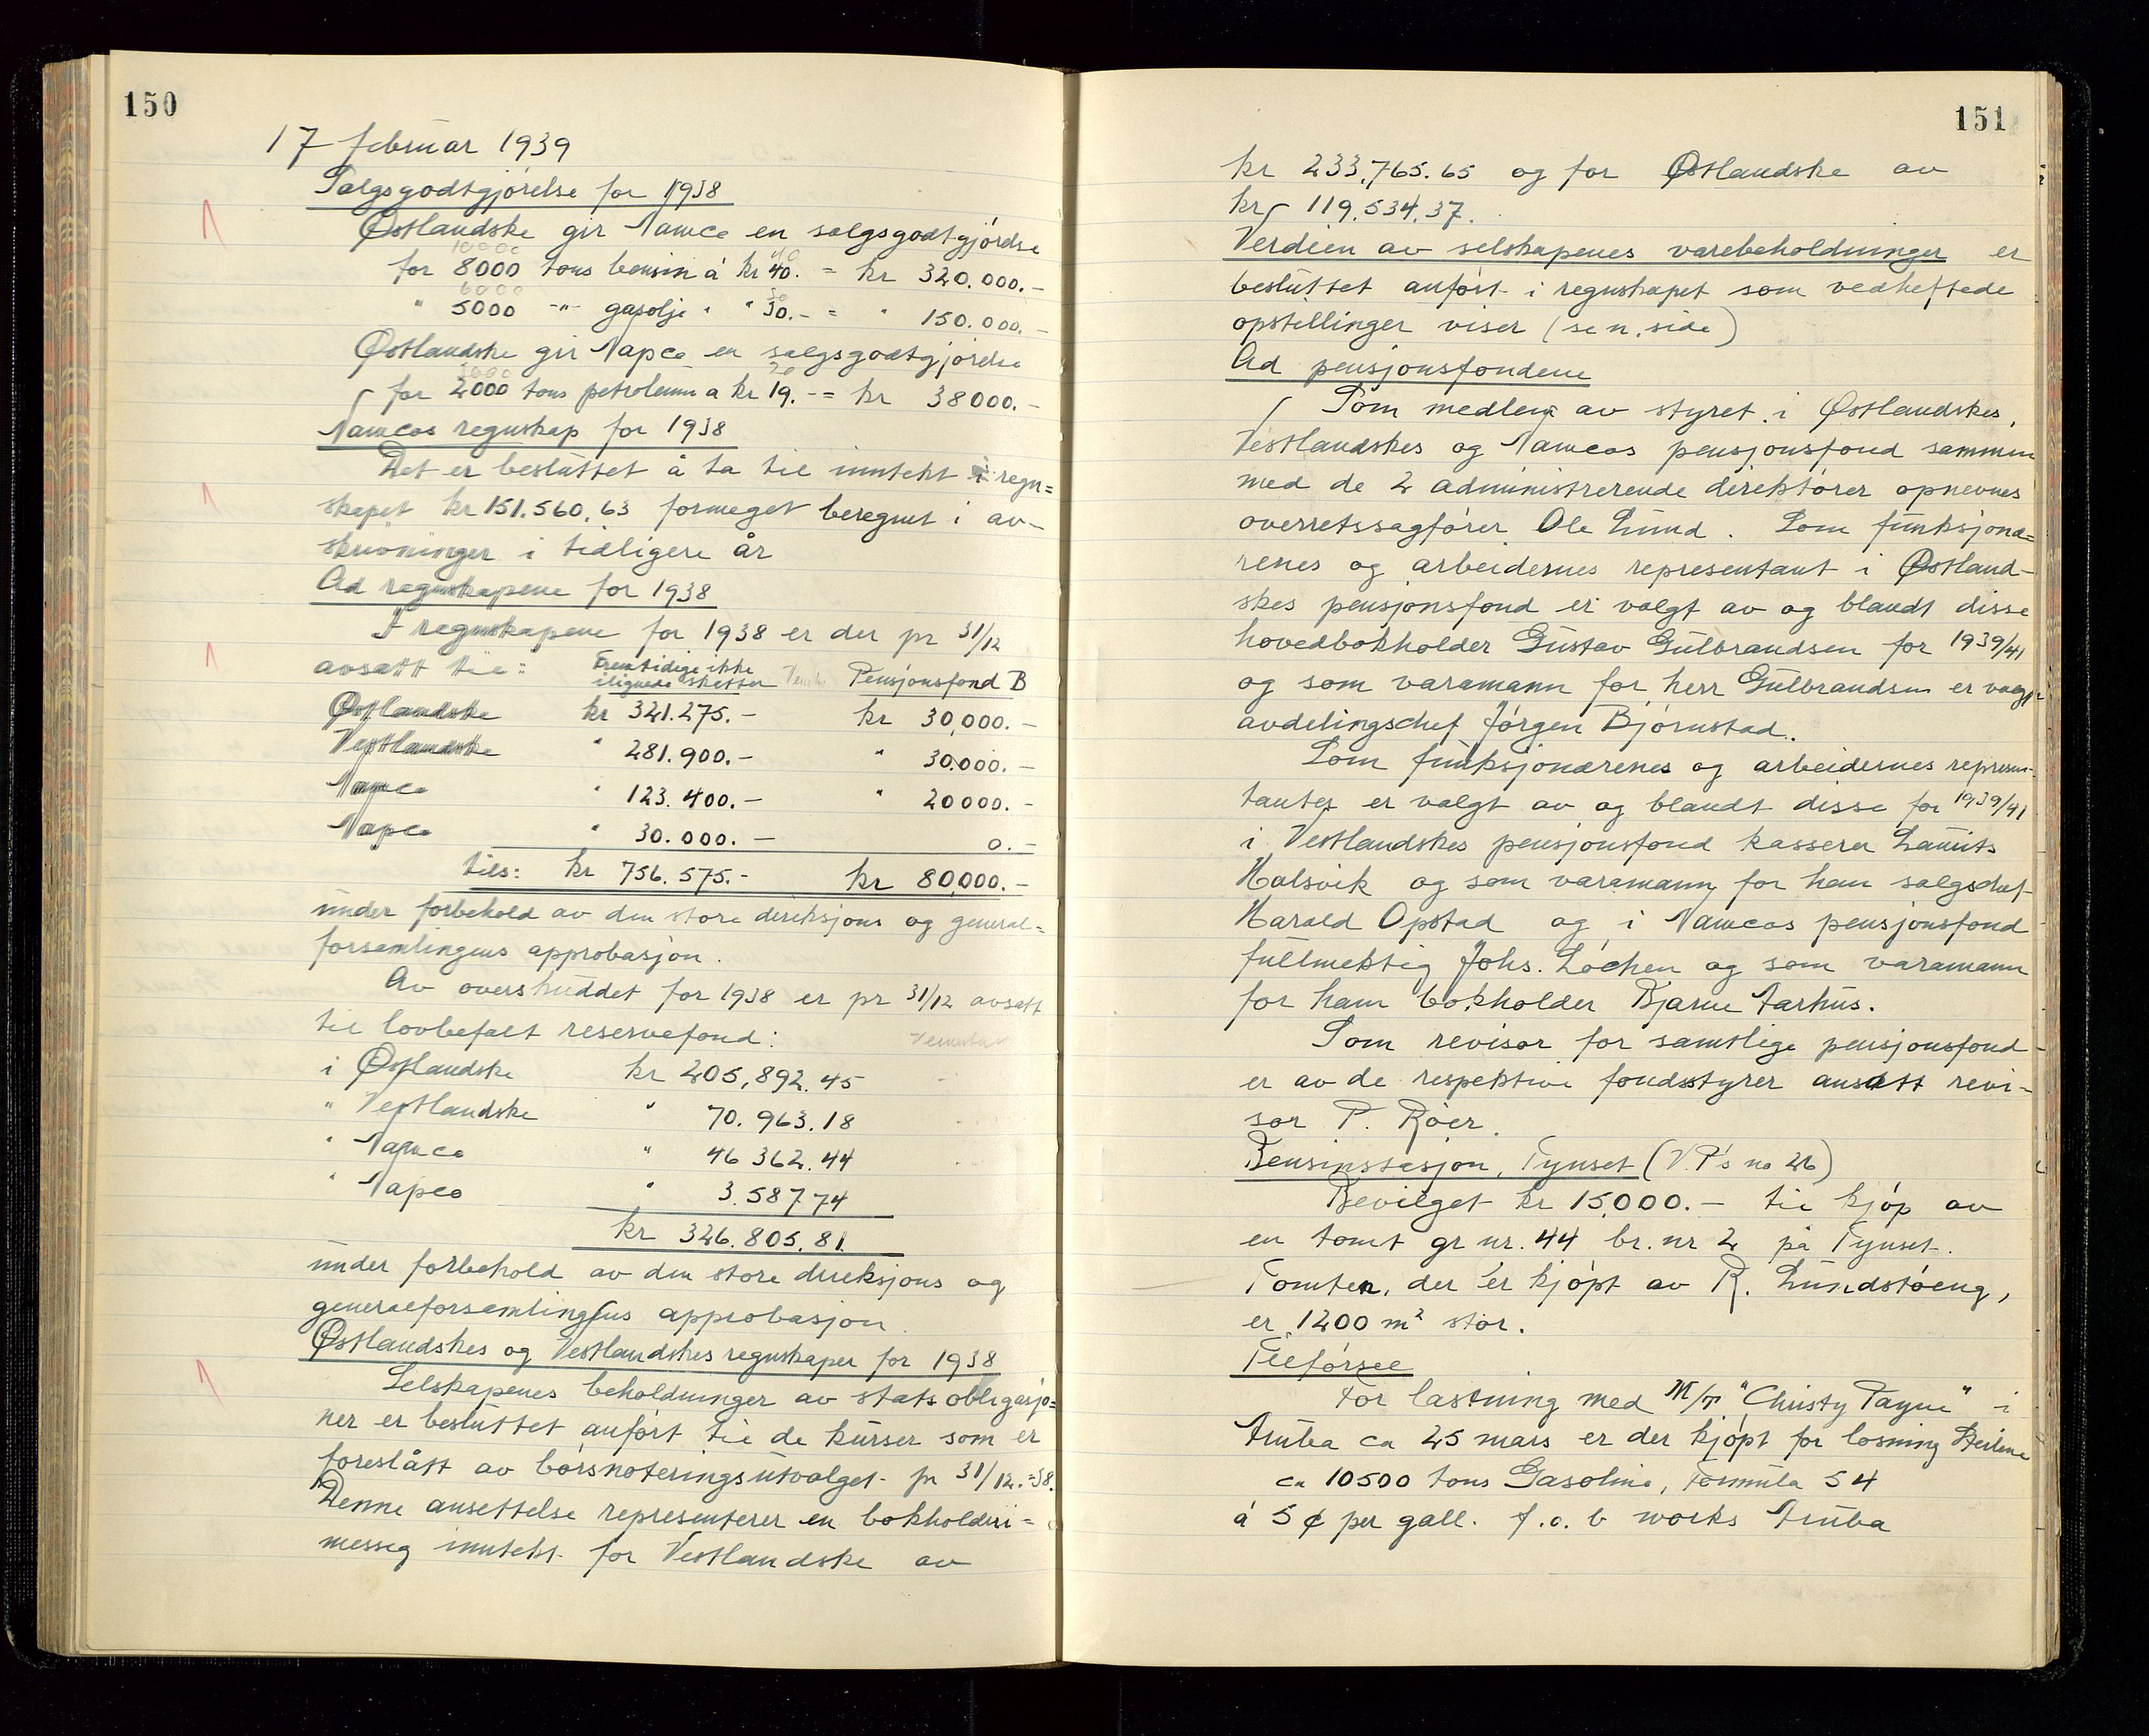 150
17 februar 1939
Salgsgodtgjørelse for 1938
Østlandske gir Namco en salgsgodtgjørelse
10000 40
for 8000 tons bensin á kr 40. = kr 320.000.-
6000 30
" 5000 -"- gasolje " " 30.- = " 150.000.-
Østlandske gir Napco en salgsgodtgjørelse
20
for 2000 tons petroleum a kr 19.- = kr 38000.-
Namcos regnskap for 1938
Det er besluttet å ta til inntekt i regn=
skapet kr 151.560.63 formeget beregnet i av-
skrivninger i tidligere år
Ad regnskapene for 1938
I regnskapene for 1938 er der pr 31/12
avsatt til: Fremtidige ikke
ilignede skatter Pensjonsfond B
Østlandske kr 321.275.- kr 30,000.-
Vestlandske " 281.900.- " 30.000.-
Namco " 123.400.- " 20000.-
Napco " 30.000.- 0.-
tils: kr 756.575.- kr 80,000.-
under forbehold av den store direksjons og general=
forsamlingens approbasjon.
Av overskuddet for 1938 er pr 31/12 avsatt
til lovbefalt reservefond:
i Østlandske kr 205,892.45
" Vestlandske " 70.963.18
" Namco " 46 362.44
" Napco " 3.587.74
kr 326.805.81
under forbehold av den store direksjons og
generalforsamlingens approbasjon.
Østlandskes og Vestlandskes regnskaper for 1938
Selskapenes beholdninger av statsobligasjo=
ner er besluttet anført til de kurser som er
foreslått av børsnoteringsutvalget pr 31/12.-38.
Denne ansettelse representerer en bokholderi=
messig inntekt for Vestlandske av
151
kr 233.765.65 og for Østlandske av
kr 119.534.37.
Verdien av selskapenes varebeholdninger er
besluttet anført i regnskapet som vedheftede
opstillinger viser (se n. side)
Ad pensjonsfondene
Som medlem av styret i Østlandskes,
Vestlandskes og Namcos pensjonsfond sammen
med de 2 administrerende direktører opnevnes
overretssagfører Ole Lund. Som funksjonæ=
renes og arbeidernes representant i Østland-
skes pensjonsfond er valgt av og blandt disse
hovedbokholder Gustav Gulbrandsen for 1939/41
og som varamann for herr Gulbrandsen er valgt
avdelingschef Jørgen Bjørnstad.
Som funksjonærenes og arbeidernes represen-
tanter er valgt av og blandt disse for 1939/41
i Vestlandskes pensjonsfond kasserer Laurits
Halsvik og som varamann for ham salgschef
Harald Opstad og i Namcos pensjonsfond
fullmektig Johs. Løchen og som varamann
for ham bokholder Bjarne Aarhus.
Som revisor for samtlige pensjonsfond
er av de respektive fondsstyrer ansatt revi-
sor P. Röer.
Bensinstasjon, Tynset (V.P's no 26)
Bevilget kr 15.000.- til kjøp av
en tomt gr nr. 44 br. nr 2 på Tynset.
Tomten, der er kjøpt av R. Lundstøeng,
er 1200 m² stor.
Tilførsel
For lastning med M/T "Christy Payne" i
Aruba ca 25 mars er der kjøpt for losning Steilene
ca 10500 tons Gasoline, Formula 54
á 5 ¢ per gall. f.o.b works Aruba